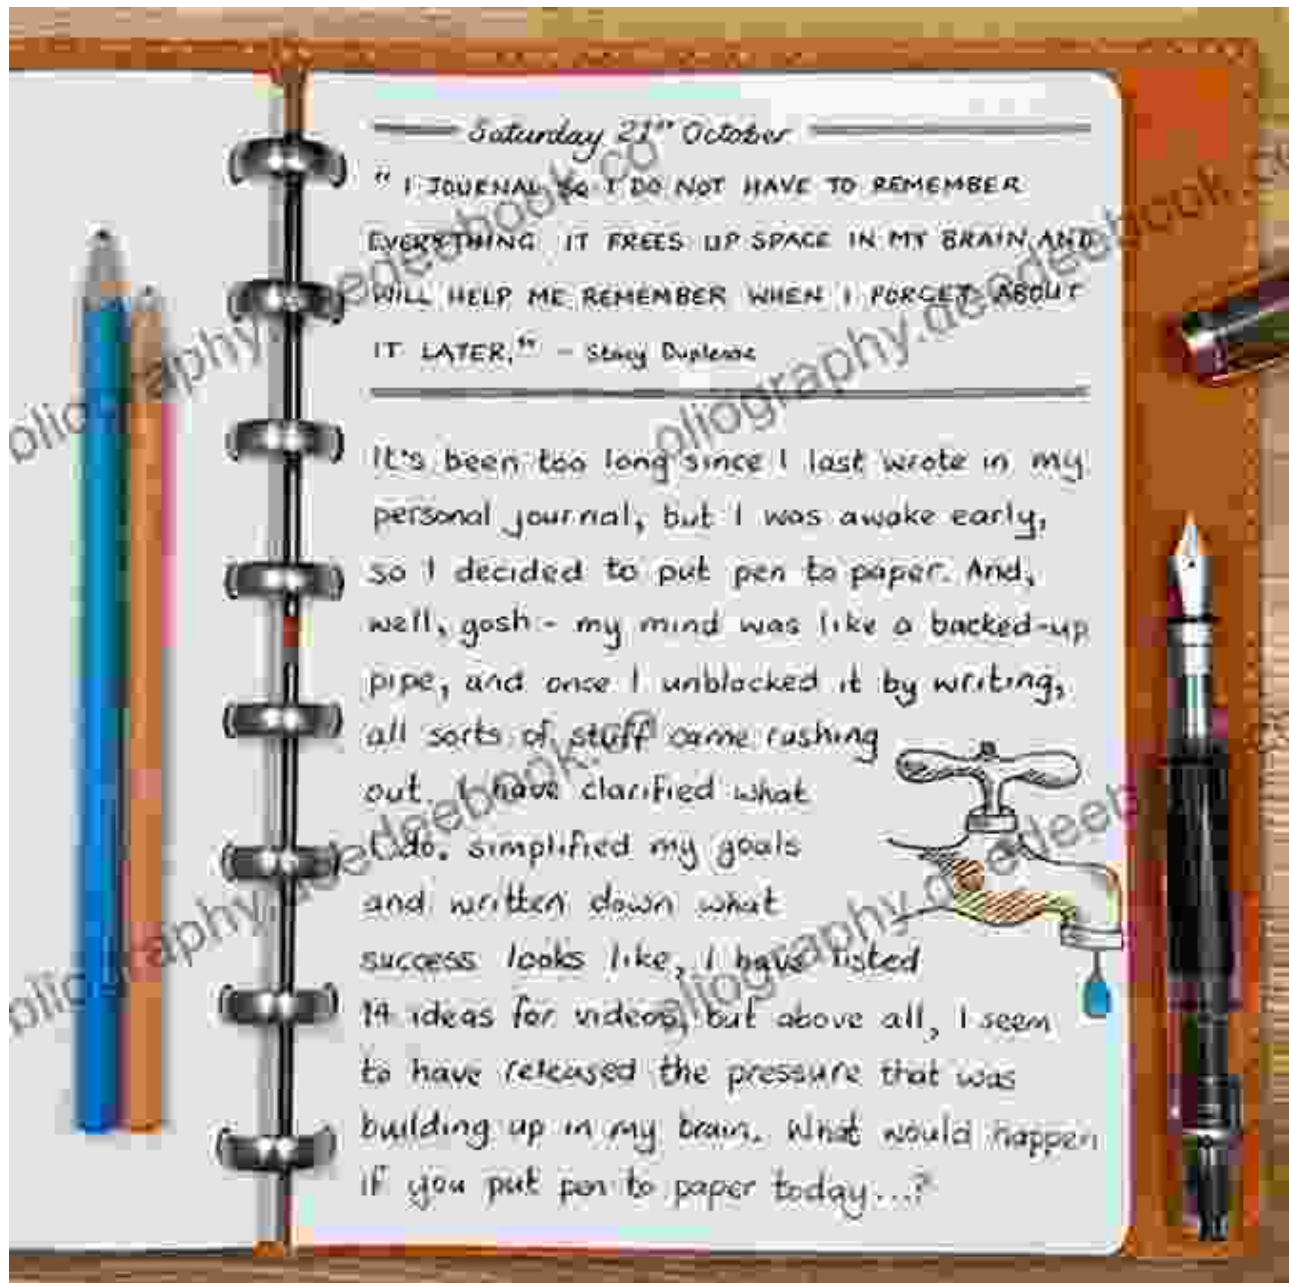 Saturday 21st October
" I JOURNAL SO I DO NOT HAVE TO REMEMBER
EVERYTHING. IT FREES UP SPACE IN MY BRAIN AND
WILL HELP ME REMEMBER WHEN I FORGET ABOUT
IT LATER." - Stacy
It's been too long since I last wrote in my
personal journal, but I was awake early,
so I decided to put pen to paper. And,
well, gosh - my mind was like a backed-up
pipe, and once I unblocked it by writing,
all sorts of stuff came rushing
out. I have clarified what
I do, simplified my goals
and written down what
success looks like, I have listed
14 ideas for videos, but above all, I seem
to have released the pressure that was
building up in my brain. What would happen
if you put pen to paper today...?
oliography.deedeebook.co
oliography.deedeebook.co
oliography.deedeebook.co
oliography.deedeeb